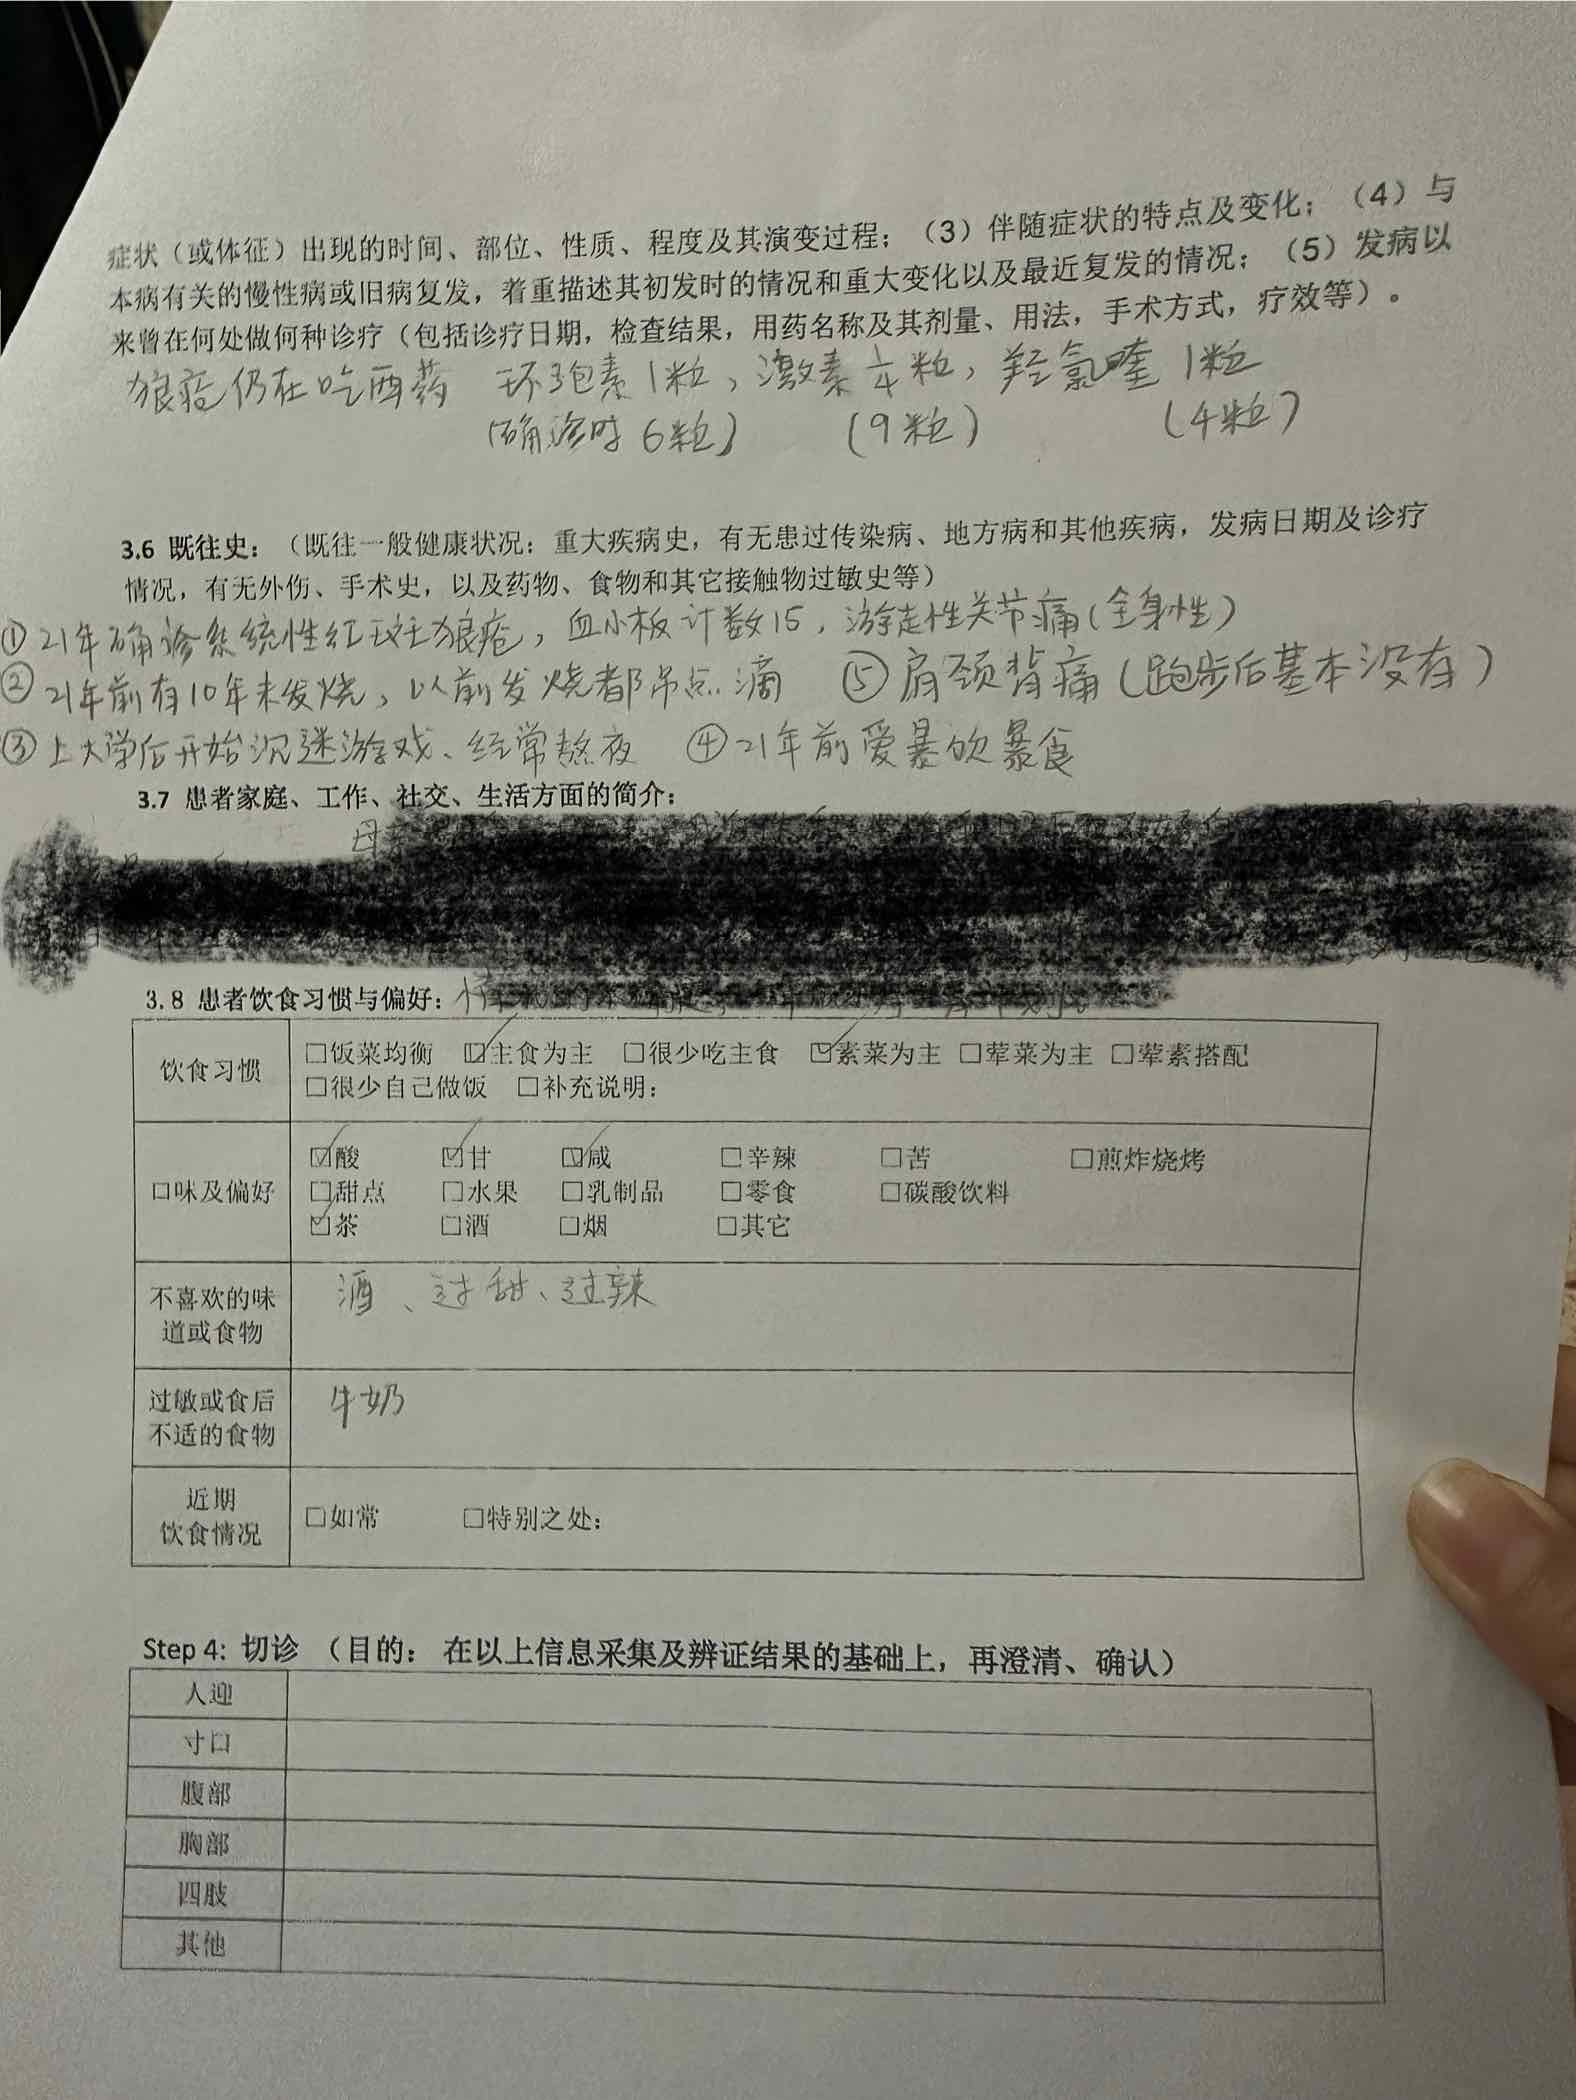 症状（或体征）出现的时间、部位、性质、程度及其演变过程；（3）伴随症状的特点及变化；（4）与
本病有关的慢性病或旧病复发，着重描述其初发时的情况和重大变化以及最近复发的情况；（5）发病以
来曾在何处做何种诊疗（包括诊疗日期，检查结果，用药名称及其剂量、用法，手术方式，疗效等）。
狼疮仍在吃西药 环孢素1粒，激素¼粒，羟氯喹1粒
（确诊时6粒） （9粒） （4粒）
3.6 既往史：（既往一般健康状况：重大疾病史，有无患过传染病、地方病和其他疾病，发病日期及诊疗
情况，有无外伤、手术史，以及药物、食物和其它接触物过敏史等）
①21年确诊系统性红斑狼疮，血小板计数15，游走性关节痛（全身性）
②21年前有10年未发烧，以前发烧都吊点滴 ⑤肩颈背痛（跑步后基本没有）
③上大学后开始沉迷游戏、经常熬夜 ④21年前爱暴饮暴食
3.7 患者家庭、工作、社交、生活方面的简介：
3.8 患者饮食习惯与偏好：
饮食习惯 □饭菜均衡 ☑主食为主 □很少吃主食 ☑素菜为主 □荤菜为主 □荤素搭配
□很少自己做饭 □补充说明：
口味及偏好 ☑酸 ☑甘 ☑咸 □辛辣 □苦 □煎炸烧烤
□甜点 □水果 □乳制品 □零食 □碳酸饮料
☑茶 □酒 □烟 □其它
不喜欢的味
道或食物 酒、过甜、过辣
过敏或食后
不适的食物 牛奶
近期
饮食情况 □如常 □特别之处：
Step 4: 切诊 （目的： 在以上信息采集及辨证结果的基础上，再澄清、确认）
人迎
寸口
腹部
胸部
四肢
其他